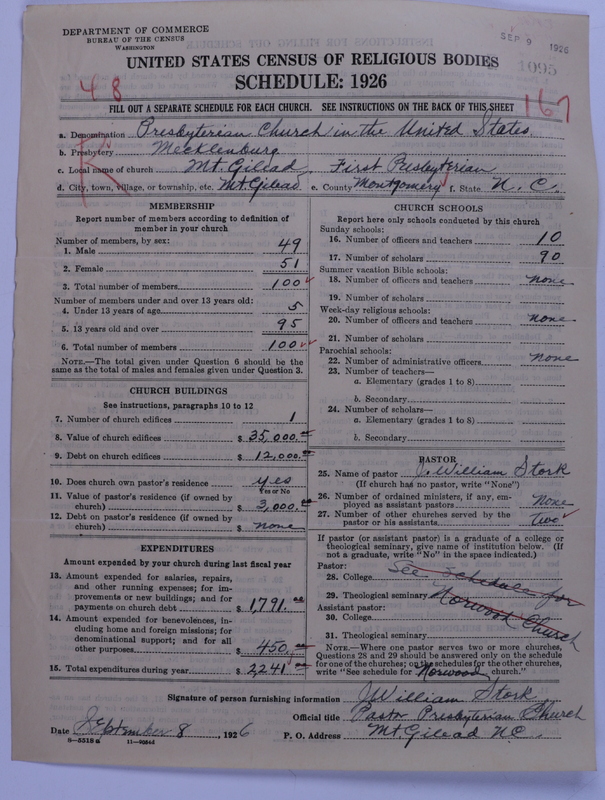 DEPARTMENT OF COMMERCE
BUREAU OF THE CENSUS
WASHINGTON
SEP 9 1926
1095
UNITED STATES CENSUS OF RELIGIOUS BODIES
SCHEDULE: 1926
48
167
FILL OUT A SEPARATE SCHEDULE FOR EACH CHURCH. SEE INSTRUCTIONS ON THE BACK OF THIS SHEET
R
a. Denomination Presbyterian Church in the United States
b. Presbytery Mecklenburg
c. Local name of church Mt. Gilead, First Presbyterian
d. City, town, village, or township, etc. Mt. Gilead e. County Montgomery f. State N. C.
MEMBERSHIP
Report number of members according to definition of
member in your church
Number of members, by sex:
1. Male 49
2. Female 51
3. Total number of members 100
Number of members under and over 13 years old:
4. Under 13 years of age 5
5. 13 years old and over 95
6. Total number of members 100
NOTE.—The total given under Question 6 should be the
same as the total of males and females given under Question 3.
CHURCH BUILDINGS
See instructions, paragraphs 10 to 12
7. Number of church edifices 1
8. Value of church edifices $ 35,000.00
9. Debt on church edifices $ 12,000.00
10. Does church own pastor's residence yes
Yes or No
11. Value of pastor's residence (if owned by
church) $ 3,000.00
12. Debt on pastor's residence (if owned by
church) $ none
EXPENDITURES
Amount expended by your church during last fiscal year
13. Amount expended for salaries, repairs,
and other running expenses; for im-
provements or new buildings; and for
payments on church debt $ 1791.00
14. Amount expended for benevolences, in-
cluding home and foreign missions; for
denominational support; and for all
other purposes $ 450.00
15. Total expenditures during year $ 2241.00
CHURCH SCHOOLS
Report here only schools conducted by this church
Sunday schools:
16. Number of officers and teachers 10
17. Number of scholars 90
Summer vacation Bible schools:
18. Number of officers and teachers none
19. Number of scholars
Week-day religious schools:
20. Number of officers and teachers none
21. Number of scholars
Parochial schools:
22. Number of administrative officers none
23. Number of teachers—
a. Elementary (grades 1 to 8)
b. Secondary
24. Number of scholars—
a. Elementary (grades 1 to 8)
b. Secondary
PASTOR
25. Name of pastor J. William Stork
(If church has no pastor, write "None")
26. Number of ordained ministers, if any, em-
ployed as assistant pastors None
27. Number of other churches served by the
pastor or his assistants Two
If pastor (or assistant pastor) is a graduate of a college or
theological seminary, give name of institution below. (If
not a graduate, write "No" in the space indicated.)
Pastor:
28. College See Schedule for
29. Theological seminary Norwood Church
Assistant pastor:
30. College
31. Theological seminary
NOTE.—Where one pastor serves two or more churches,
Questions 28 and 29 should be answered only on the schedule
for one of the churches; on the schedules for the other churches,
write "See schedule for Norwood church."
Signature of person furnishing information J William Stork
Official title Pastor Presbyterian Church
Date September 8, 1926 P. O. Address Mt. Gilead NC.
8—5518a 11—9084d